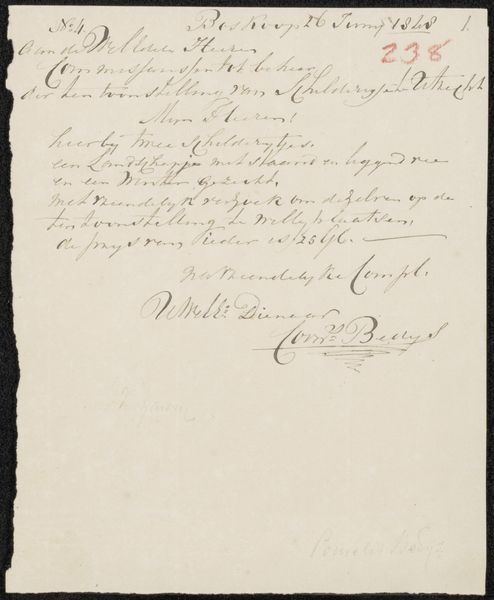 No 4 Boskoop 26 Juny 1848 1.
238
Aan de WelEdele Heeren
Commissarissen tot beheer
der ten toonstelling van Schilderyen Utrecht
Myn Heeren!
hierby twee schilderytjes.
een Landschapje met staand en liggend vee
en een Winter gezicht.
met vriendelyk verzoek om dezelven op de
ten toonstelling te willen plaatsen,
de prys van ieder is 25 Gl.
Na vriendelyke Compl.
UWelE. Dienaar
Corns. Bedys